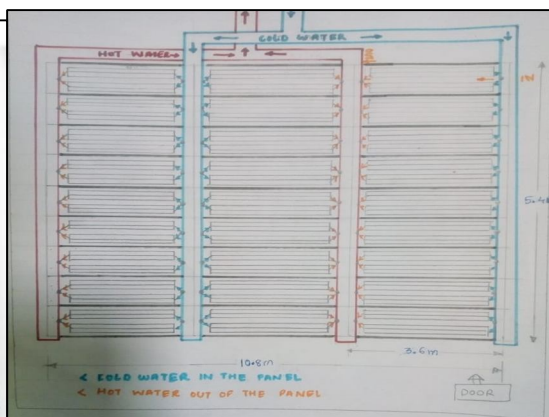 COLD WATER
HOT WATER
5.4
10.8m
3.6m
< COLD WATER IN THE PANEL
< HOT WATER OUT OF THE PANEL
DOOR